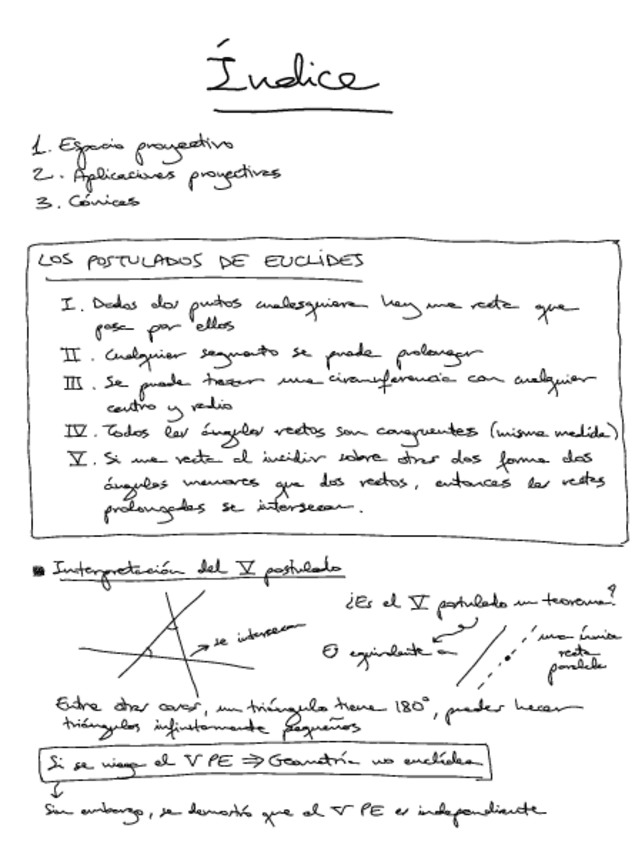 Índice
1. Espacio proyectivo
2. Aplicaciones proyectivas
3. Cónicas
LOS POSTULADOS DE EUCLIDES
I. Dados dos puntos cualesquiera hay una recta que
pasa por ellos
II. Cualquier segmento se puede prolongar
III. Se puede trazar una circunferencia con cualquier
centro y radio
IV. Todos los ángulos rectos son congruentes (misma medida)
V. Si una recta al incidir sobre otras dos forma dos
ángulos menores que dos rectos, entonces las rectas
prolongadas se intersecan.
Interpretación del V postulado
¿Es el V postulado un teorema?
se intersecan
Es equivalente a
una única
recta
paralela
Entre otras cosas, un triángulo tiene 180°, puedes hacer
triángulos infinitamente pequeños
Si se niega el V PE ⇒ Geometría no euclídea
Sin embargo, se demostró que el V PE es independiente